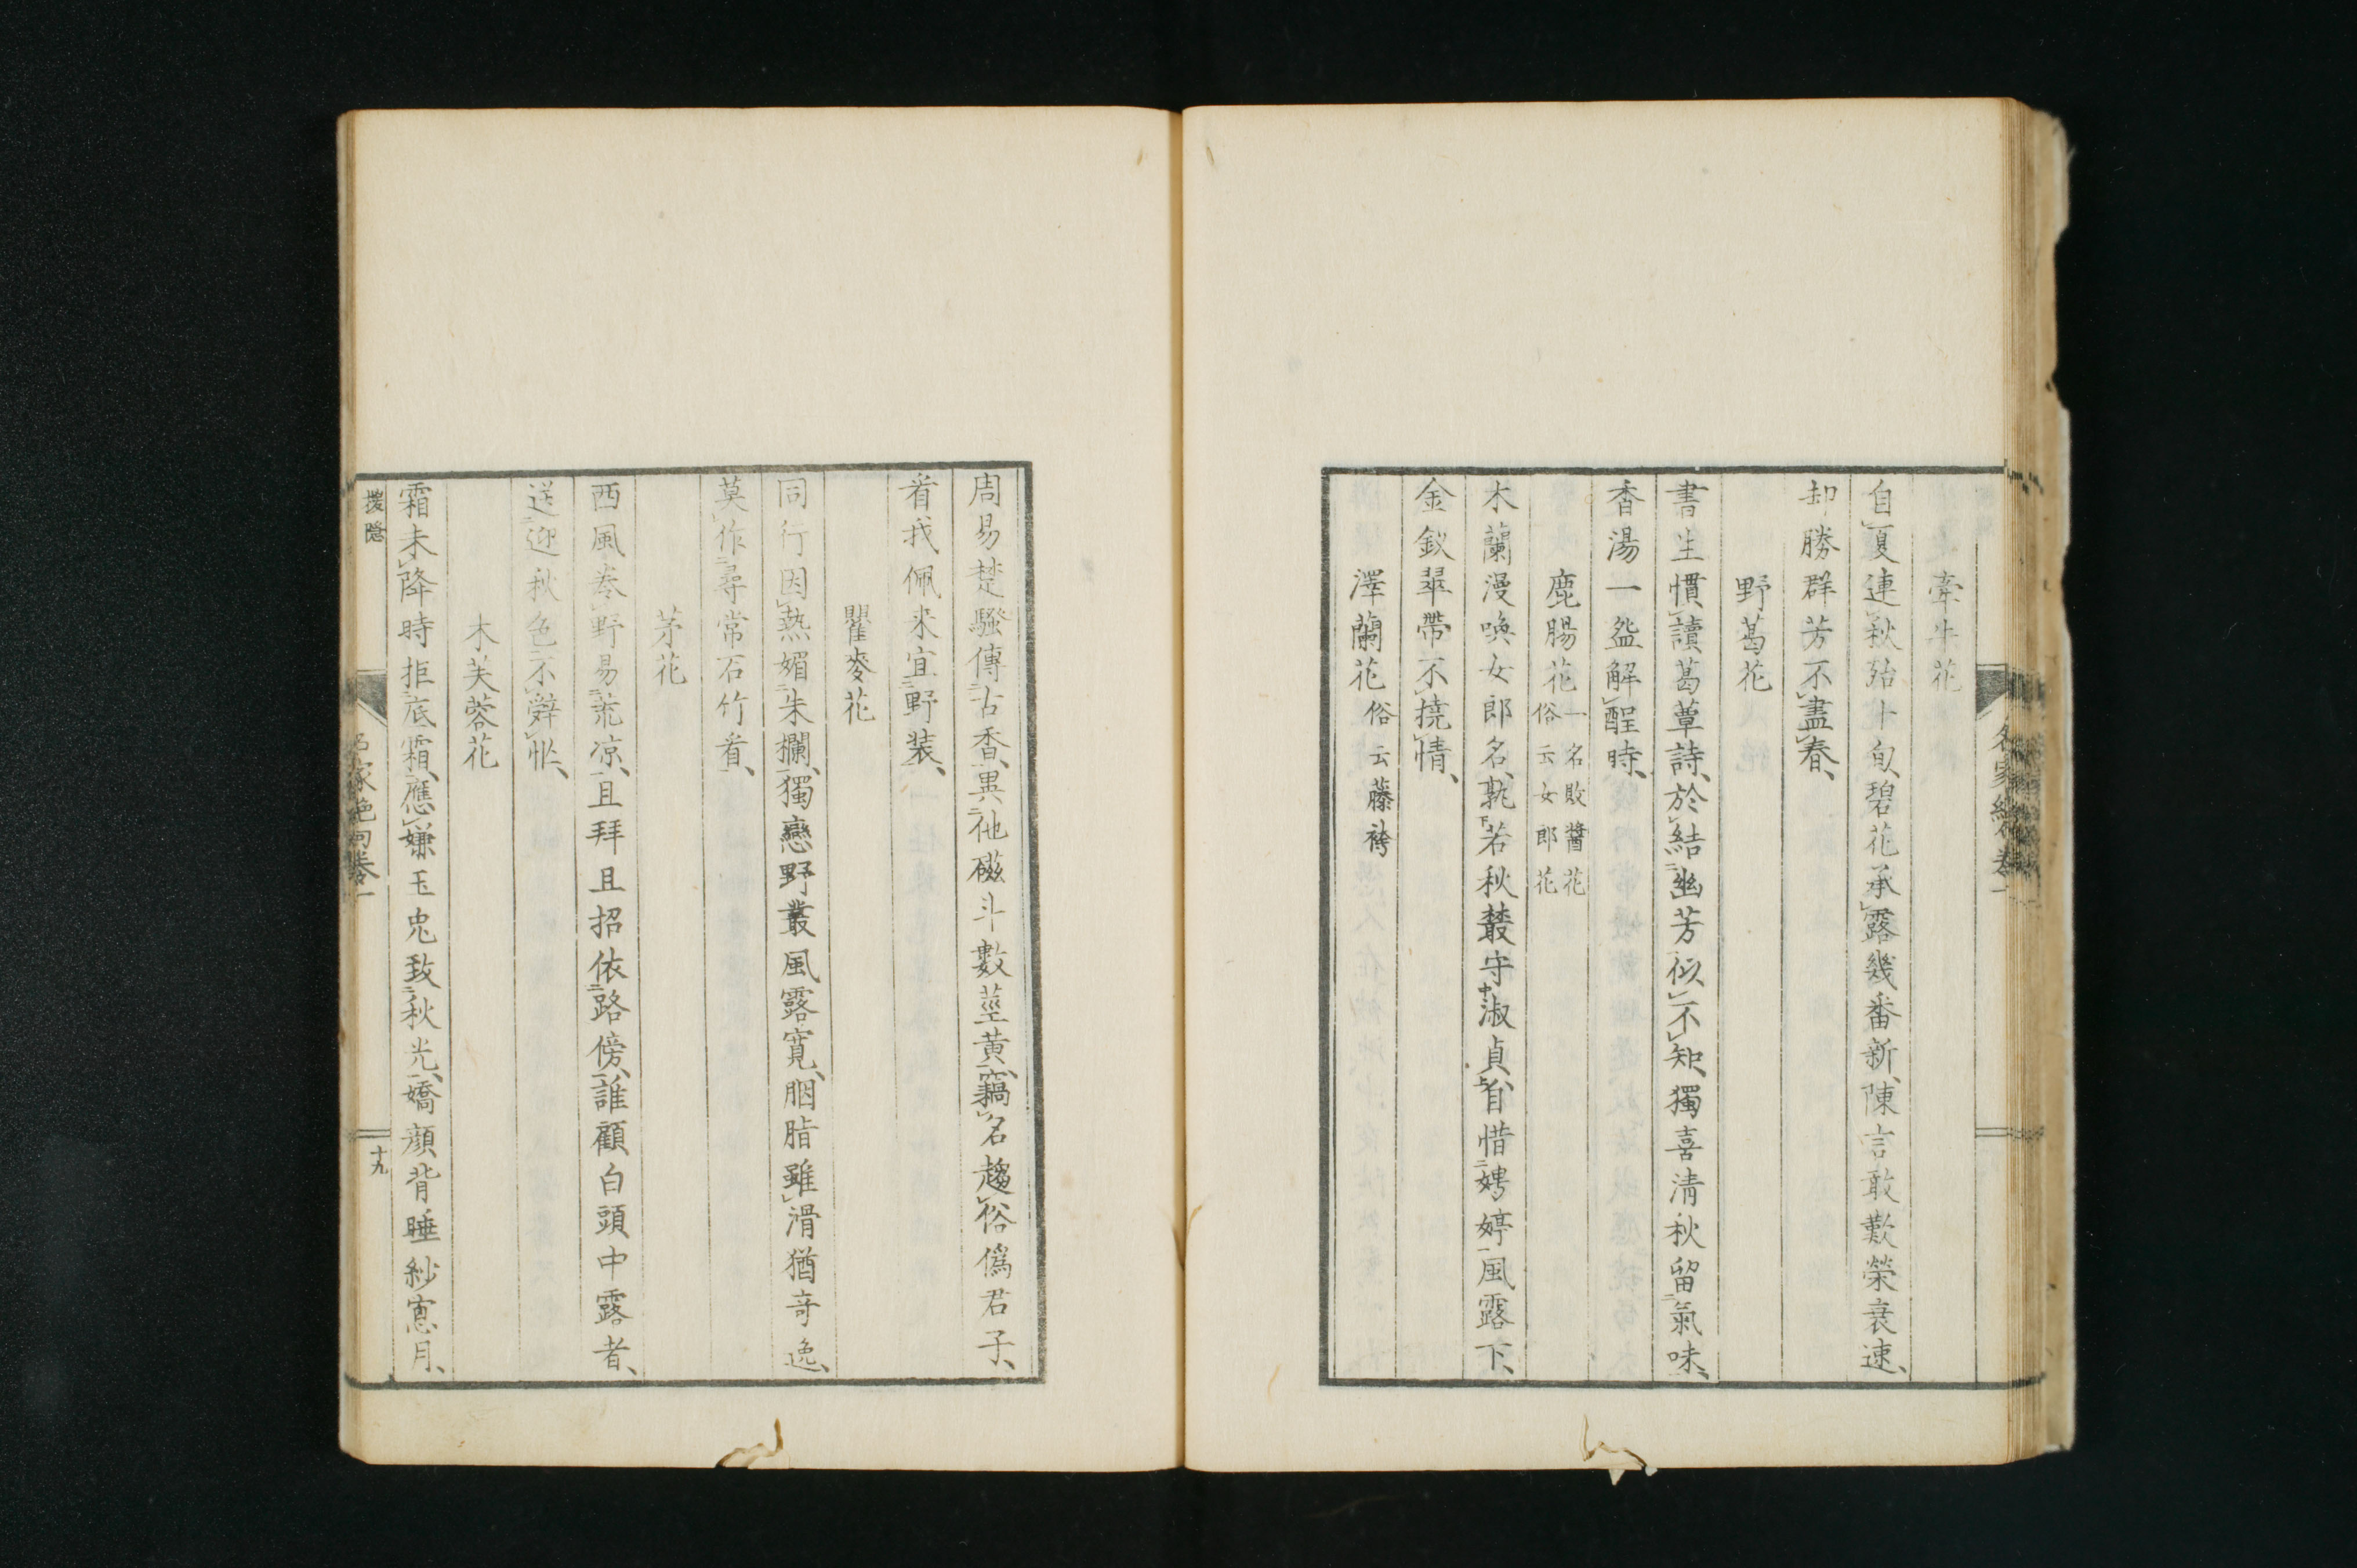 牽牛花
自夏連秋殆十旬、碧花承露幾番新、陳言敢歎榮衰速、
却勝群芳不盡春、
野葛花
書生慣讀葛蕈詩、於結幽芳似不知、獨喜清秋留氣味、
香湯一盌解酲時、
鹿腸花 一名敗醬花 俗云女郎花
木蘭漫喚女郎名、孰若秋叢守淑貞、自惜娉婷風露下、
金釵翠帶不撓情、
澤蘭花 俗云藤袴
周易楚騷傳古香、異他礠斗數莖黄、竊名趨俗僞君子、
看我佩来宜野装、
瞿麥花
同行因熱媚朱欄、獨戀野叢風露寬、胭脂雖滑猶奇逸、
莫作尋常石竹看、
茅花
西風巻野易荒凉、且拜且招依路傍、誰顧白頭中露者、
送迎秋色不辭忙、
木芙蓉花
霜未降時拒底霜、應嫌玉兎致秋光、嬌顔背睡紗窓月、
名家絶句巻一
十九